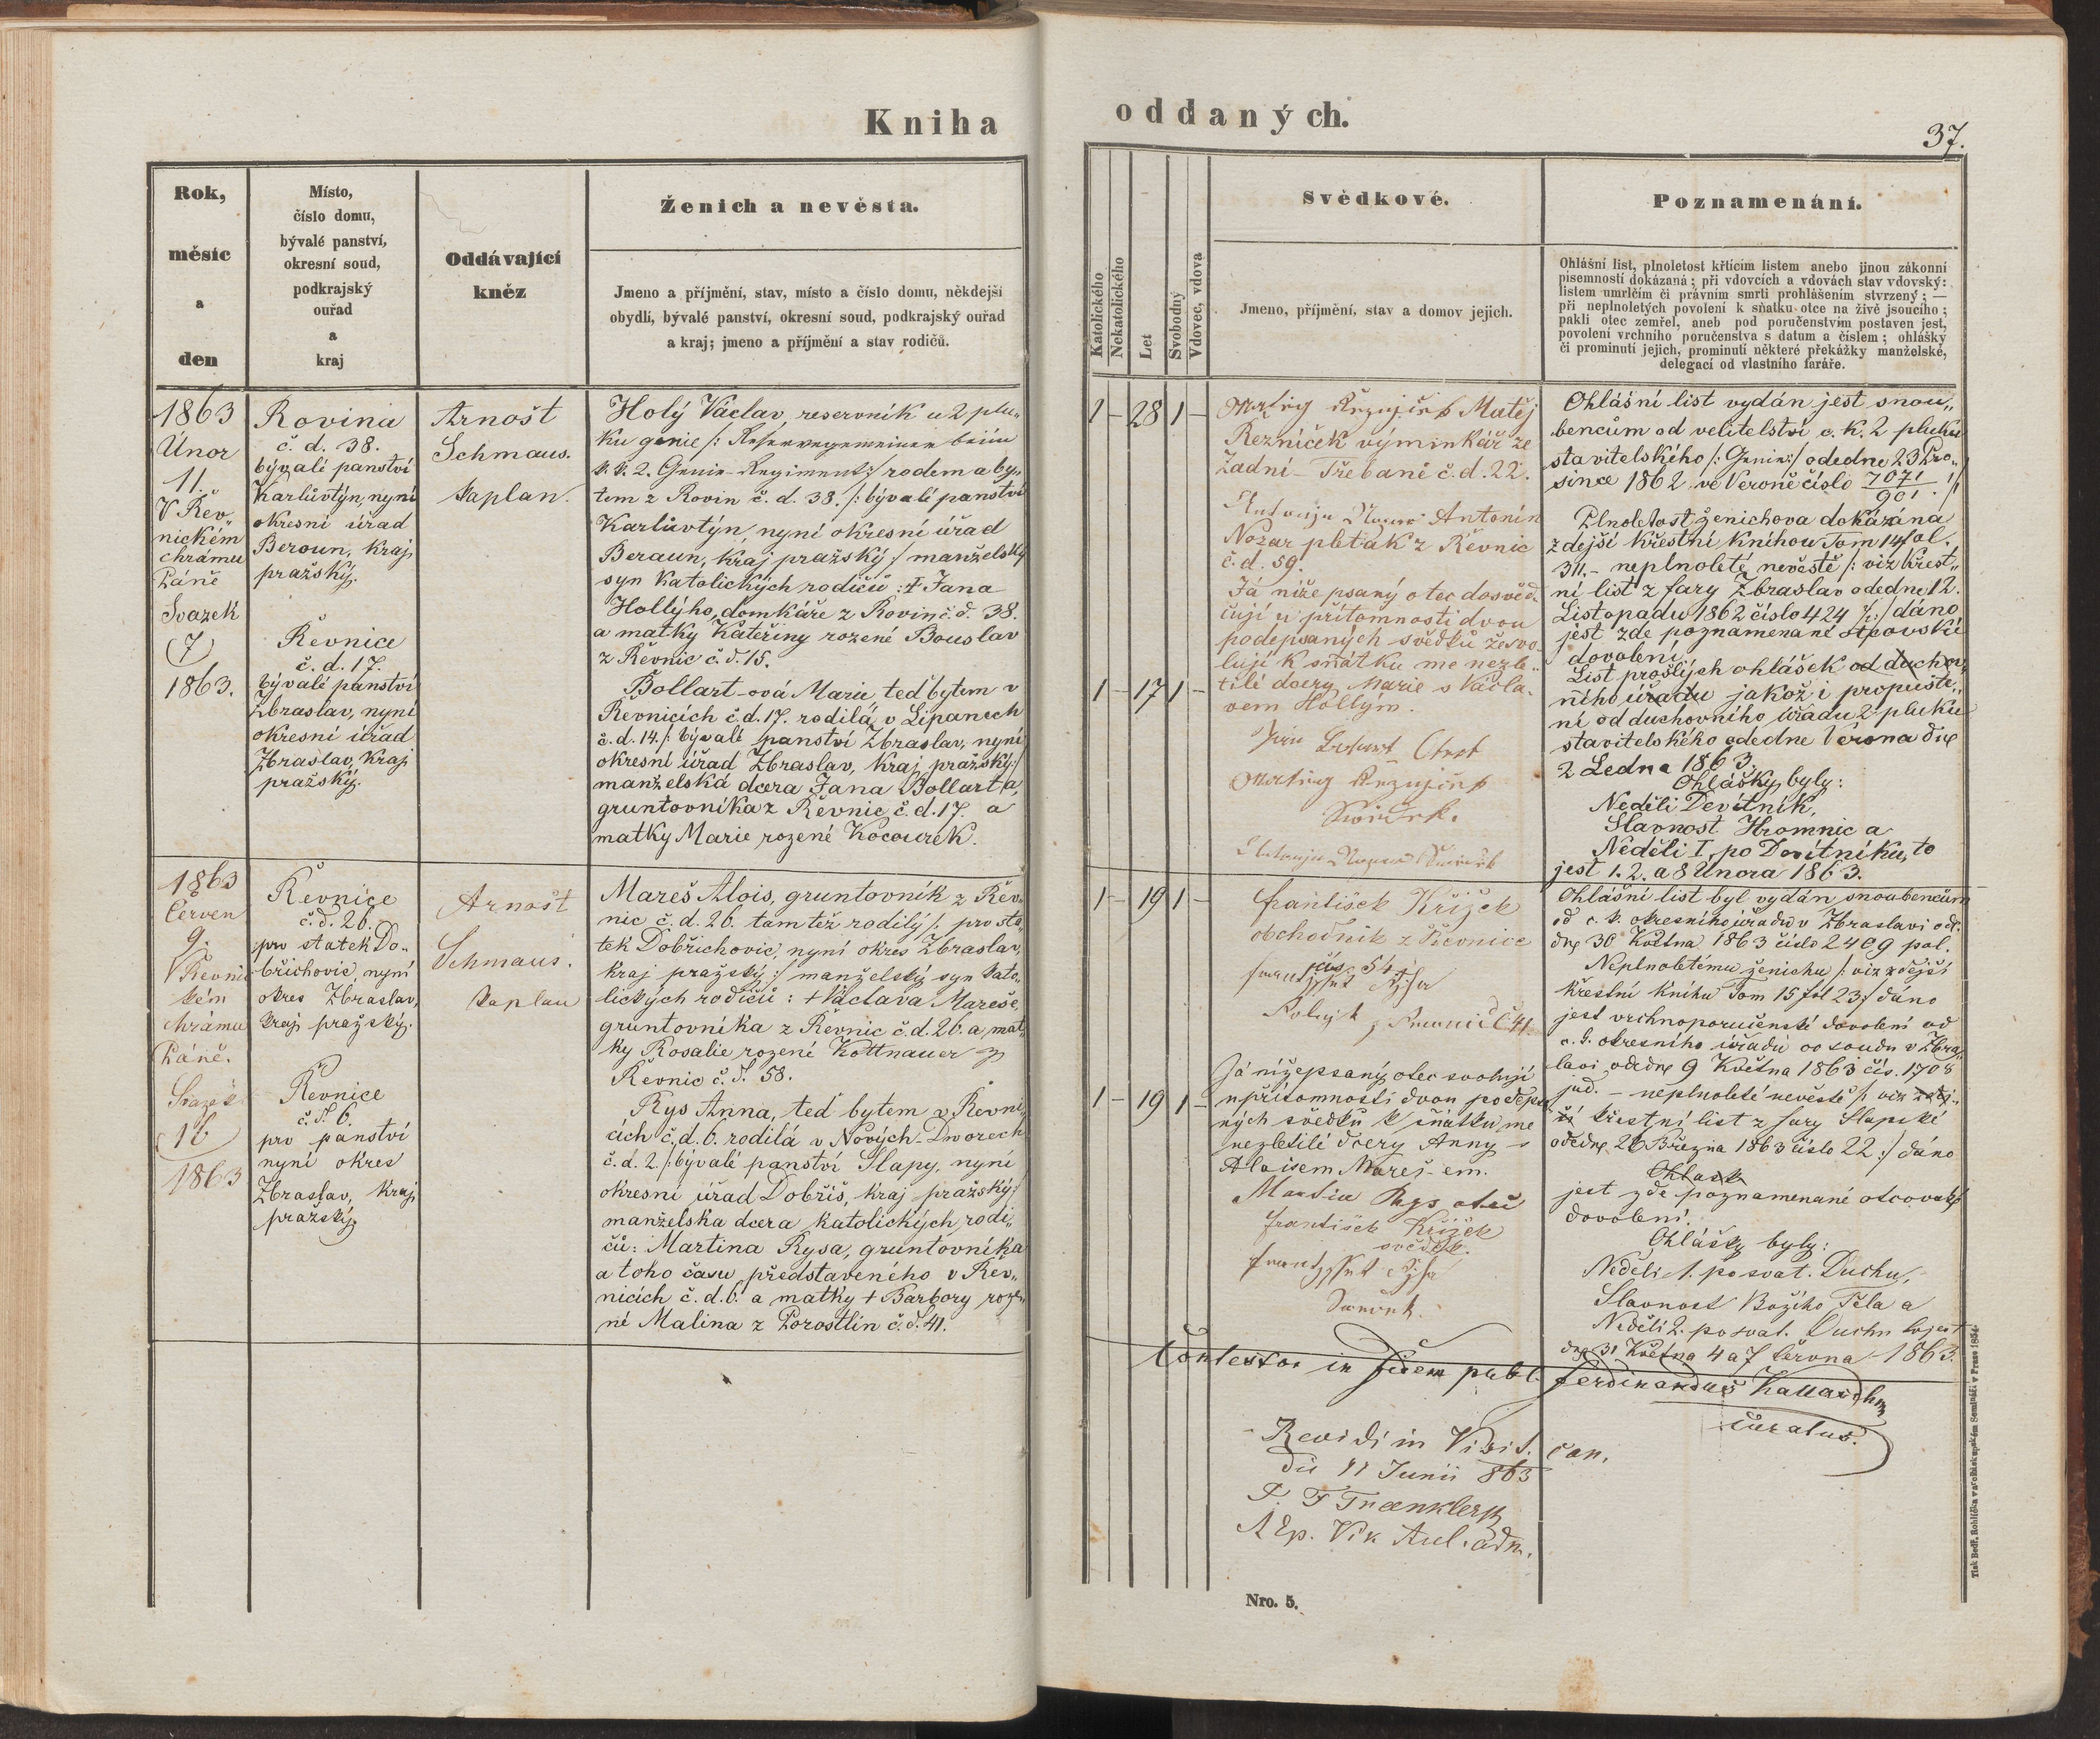 Kniha
oddaných.
37.
Rok,
měsíc
a
den
Místo,
číslo domu,
bývalé panství,
okresní soud,
podkrajský
ouřad
a
kraj
Oddávající
kněz
Ženich a nevěsta.
Jmeno a příjmění, stav, místo a číslo domu, někdejší
obydlí, bývalé panství, okresní soud, podkrajský ouřad
a kraj; jmeno a příjmění a stav rodičů.
Katolického
Nekatolického
Let
Svobodný
Vdovec, vdova
Svědkové.
Jmeno, příjmění, stav a domov jejich.
Poznamenání.
Ohlášní list, plnoletost křticím listem anebo jinou zákonní
písemností dokázaná; při vdovcích a vdovách stav vdovský:
listem umrlčím či právním smrti prohlášením stvrzený; —
při neplnoletých povolení k sňatku otce na živě jsoucího;
pakli otec zemřel, aneb pod poručenstvím postaven jest,
povolení vrchního poručenstva s datum a číslem; ohlášky
či prominutí jejich, prominutí některé překážky manželské,
delegací od vlastního faráře.
1863
Únor
11.
V Řev„
nickém
chrámu
Páně
Svazek
7
1863.
Rovina
č. d. 38.
bývalé panství
Karlůvtýn, nyní
okresní úřad
Beroun, kraj
pražský.
Řevnice
č. d. 17.
bývalé panství
Zbraslav, nyní
okresní úřad
Zbraslav, kraj
pražský.
Arnošt
Schmaus.
kaplan.
Holý Václav, reservník u 2 plu„
ku genie
k. k. 2. Genie-Regiment:/ rodem a by„
tem z Rovin č. d. 38. /: bývalé panství
Karlůvtýn, nyní okresní úřad
Beraun, kraj pražský :/ manželský
syn katolických rodičů: † Jana
Hollýho, domkáře z Rovin č. d. 38.
a matky Kateřiny rozené Bouslav
z Řevnic č. d. 15.
Bollart-ová Marie, teď bytem v
Řevnicích č. d. 17. rodilá v Lipanech
č. d. 14. /: bývalé panství Zbraslav, nyní
okresní úřad Zbraslav, kraj pražský:/
manželská dcera Jana Bollarta,
gruntovníka z Řevnic č. d. 17. a
matky Marie rozené Kocourek.
1 — 28 1 —
1 — 17 1 —
Matěj
Řezníček výminkář ze
Zadní-Třebaně č. d. 22.
Antonín
Nožar pleták z Řevnic
č. d. 59.
Já níže psaný otec dosvěd„
čuji u přítomnosti dvou
podepsaných svědků že svo„
luji k sňatku mé nezle„
tilé dcery Marie s Václa„
vem Hollým.
Ohlášní list vydán jest snou„
bencům od velitelství c. k. 2 pluku
stavitelského /: Genie:/ odedne 23 Pro„
since 1862 ve Veroně číslo 7071/901.
Plnoletost ženichova dokázána
zdejší křestní knihou Tom 14 fol.
311. — neplnoleté nevěstě /: viz křest„
ní list z fary Zbraslav odedne 12.
Listopadu 1862 číslo 424 :/ dáno
jest zde poznamenané otcovské
dovolení.
List prošlých ohlášek od duchov„
ního úřadu jakož i propuště„
ní od duchovního úřadu 2 pluku
stavitelského odedne Verona dne
2 Ledna 1863.
Ohlášky byly:
Neděli Devítník,
Slavnost Hromnic a
Neděli I. po Devítníku, to
jest 1. 2. a 8 Února 1863.
1863
Červen
9.
V Řevnic
kém
chrámu
Páně.
Svazek
16
1863
Řevnice
č. d. 26.
prv statek Do„
břichovic, nyní
okres Zbraslav,
kraj pražský.
Řevnice
č. d. 6.
prv panství
nyní okres
Zbraslav, kraj
pražský
Arnošt
Schmaus.
kaplan
Mareš Alois, gruntovník z Řev„
nic č. d. 26. tamtéž rodilý /: prv sta„
tek Dobřichovic, nyní okres Zbraslav,
kraj pražský :/ manželský syn kato„
lických rodičů: † Václava Mareše,
gruntovníka z Řevnic č. d. 26. a mat„
ky Rosalie rozené Kottnauer z
Řevnic č. d. 58.
Rys Anna, teď bytem v Řevni„
cích č. d. 6. rodilá v Nových-Dworech
č. d. 2. /: bývalé panství Slapy, nyní
okresní úřad Dobříš, kraj pražský:/
manželská dcera katolických rodi„
čů: Martina Rysa, gruntovníka
a toho času představeného v Řev„
nicích č. d. 6. a matky † Barbory roze„
né Malina z Porostlin č. d. 41.
1 — 19 1 —
1 — 19 1 —
František Křížek
obchodník z Řevnice
čís. 54
Já nížepsaný otec svoluji
u přítomnosti dvou podepsa
ných svědků k sňatku mé
nezletilé dcery Anny s
Aloisem Mareš-em.
Martin Rys otec
František Křížek
svědek.
Ohlášní list byl vydán snoubencům
od c. k. okresního úřadu v Zbraslavi ode
dne 30 Května 1863 číslo 2409 pol.
Neplnoletému ženichu /: viz zdejší
křestní knihu Tom 15 fol 23 :/ dáno
jest vrchnoporučenské dovolení od
c. k. okresního úřadu co soudu v Zbra„
slavi odedne 9 Května 1863 čís. 1708
jud. — neplnoleté nevěstě /: viz
křestní list z fary Slapské
odedne 26 Března 1863 číslo 22 :/ dáno
jest zde poznamenané otcovské
dovolení.
Ohlášky byly:
Neděli 1. po svat. Duchu,
Slavnost Božího Těla a
Neděli 2. po svat. Duchu to jest
dne 31 Května 4 a 7 června 1863.
Contestor in fidem publ. Ferdinandus
curatus.
Revidi in Visit. can.
die 11 Junii 863
Nro. 5.